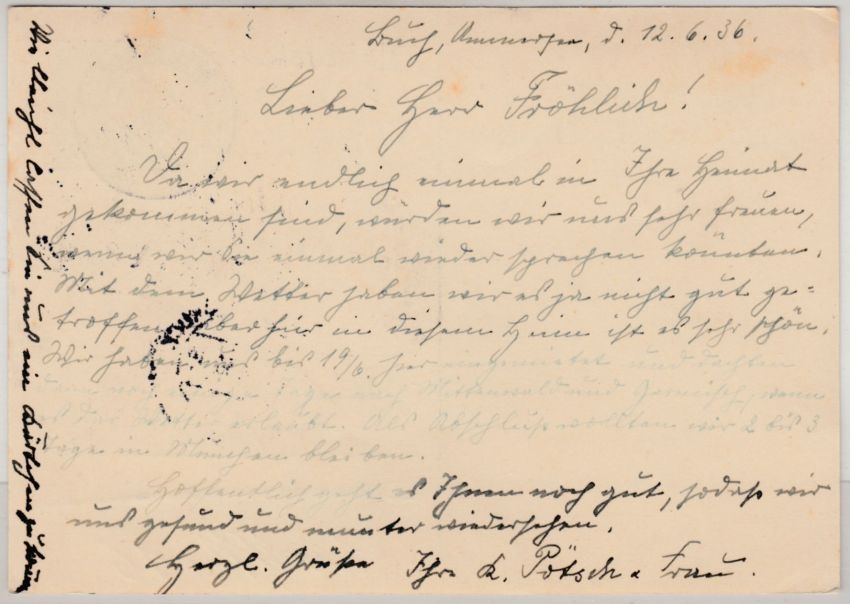 Buch, Ammersee, d. 12.6.36.
Lieber Herr Fröhlich!
Da wir endlich einmal in Ihre Heimat
gekommen sind, würden wir uns sehr freuen,
wenn wir Sie einmal wieder sprechen könnten.
Mit dem Wetter haben wir es ja nicht gut ge=
troffen, aber hier in diesem Heim ist es sehr schön.
Wir haben uns bis 19/6. hier eingemietet und dachten
dann noch einige Tage nach Mittenwald und Garmisch, wenn
es das Wetter erlaubt. Als Abschluß wollten wir 2 bis 3
Tage in München bleiben.
Hoffentlich geht es Ihnen noch gut, sodaß wir
uns gesund und munter wiedersehen.
Herzl. Grüße Ihre K. Pötsch & Frau.
Vielleicht lassen Sie uns ein Kärtchen zu